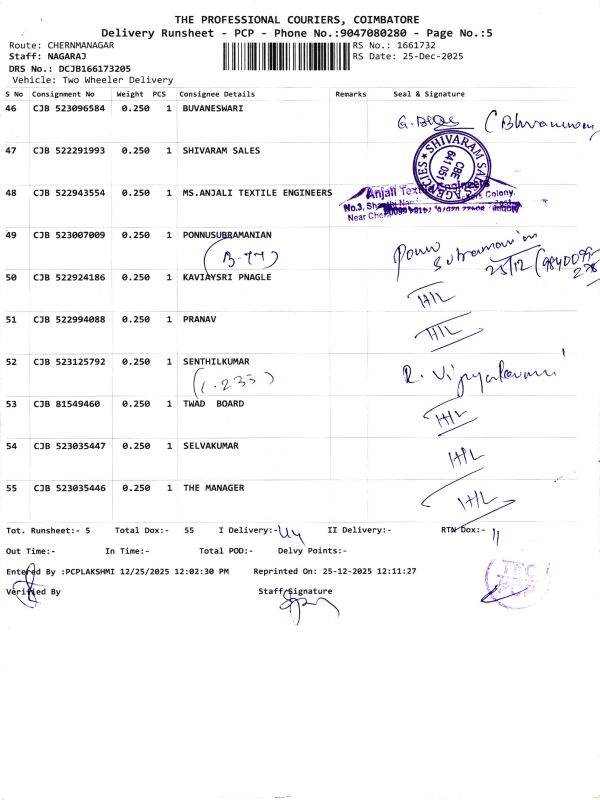 THE PROFESSIONAL COURIERS, COIMBATORE
Delivery Runsheet - PCP - Phone No.:9047080280 - Page No.:5
Route: CHERNMANAGAR RS No.: 1661732
Staff: NAGARAJ RS Date: 25-Dec-2025
DRS No.: DCJB166173205
Vehicle: Two Wheeler Delivery
S No Consignment No Weight PCS Consignee Details Remarks Seal & Signature
46 CJB 523096584 0.250 1 BUVANESWARI
47 CJB 522291993 0.250 1 SHIVARAM SALES
SHIVARAM SALES AGENCIES
CBE
641 051
48 CJB 522943554 0.250 1 MS.ANJALI TEXTILE ENGINEERS
Anjali Textile Engineers
49 CJB 523007009 0.250 1 PONNUSUBRAMANIAN
(B-77)
25/12
50 CJB 522924186 0.250 1 KAVIAYSRI PNAGLE H/L
51 CJB 522994088 0.250 1 PRANAV H/L
52 CJB 523125792 0.250 1 SENTHILKUMAR
53 CJB 81549460 0.250 1 TWAD BOARD H/L
54 CJB 523035447 0.250 1 SELVAKUMAR H/L
55 CJB 523035446 0.250 1 THE MANAGER H/L
Tot. Runsheet:- 5 Total Dox:- 55 I Delivery:- 44 II Delivery:- RTN Dox:- 11
Out Time:- In Time:- Total POD:- Delvy Points:-
Entered By :PCPLAKSHMI 12/25/2025 12:02:30 PM Reprinted On: 25-12-2025 12:11:27
Verified By Staff Signature
TPC
PCP